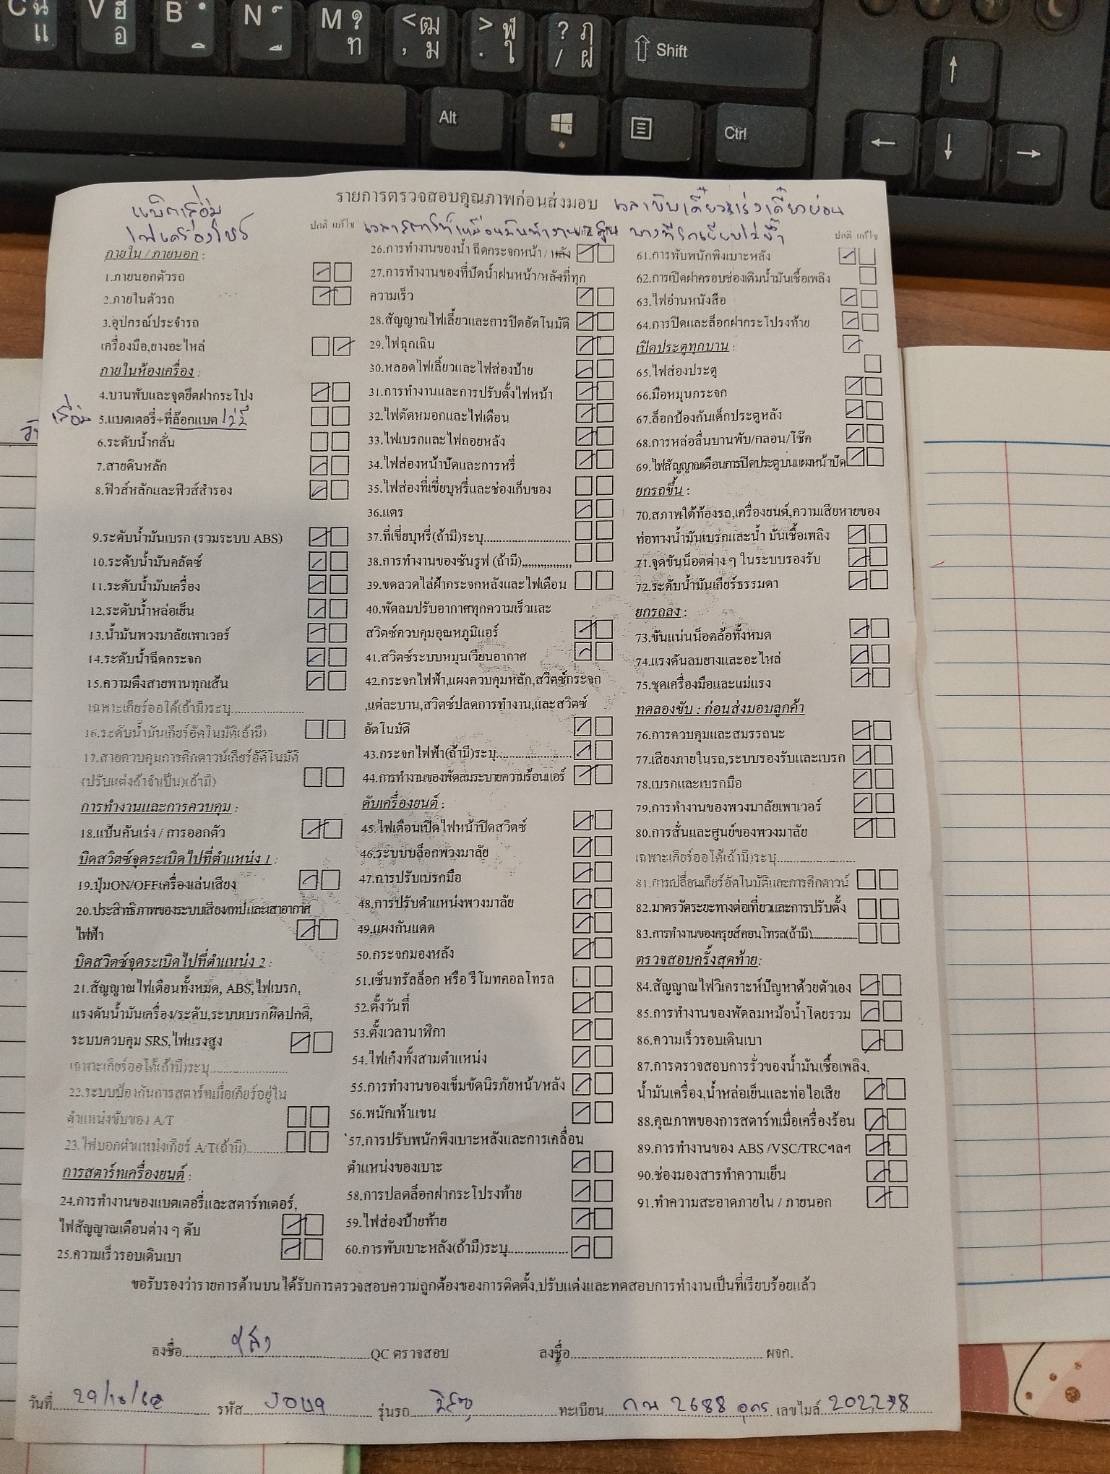 รายการตรวจสอบคุณภาพก่อนส่งมอบ
ปกติ แก้ไข
ภายใน / ภายนอก :
1.ภายนอกตัวรถ
2.ภายในตัวรถ
3.อุปกรณ์ประจำรถ
เครื่องมือ,ยางอะไหล่
ภายในห้องเครื่อง :
4.บานพับและจุดยึดฝากระโปง
5.แบตเตอรี่+ที่ล็อกแบต ไม่มี
6.ระดับน้ำกลั่น
7.สายดินหลัก
8.ฟิวส์หลักและฟิวส์สำรอง
9.ระดับน้ำมันเบรก (รวมระบบ ABS)
10.ระดับน้ำมันคลัตช์
11.ระดับน้ำมันเครื่อง
12.ระดับน้ำหล่อเย็น
13.น้ำมันพวงมาลัยเพาเวอร์
14.ระดับน้ำฉีดกระจก
15.ความตึงสายพานทุกเส้น
เฉพาะเกียร์ออโต้(ถ้ามี)ระบุ
16.ระดับน้ำมันเกียร์อัตโนมัติ(ถ้ามี)
17.สายควบคุมการคิกดาวน์เกียร์อัติโนมัติ
(ปรับแต่งถ้าจำเป็น)(ถ้ามี)
การทำงานและการควบคุม :
18.แป้นคันเร่ง / การออกตัว
บิดสวิตซ์จุดระเบิดไปที่ตำแหน่ง 1 :
19.ปุ่มON/OFFเครื่องเล่นเสียง
20.ประสิทธิภาพของระบบเสียงเทปและเสาอากาศ
ไฟฟ้า
บิดสวิตซ์จุดระเบิดไปที่ตำแหน่ง 2 :
21.สัญญาณไฟเตือนทั้งหมด, ABS, ไฟเบรก,
แรงดันน้ำมันเครื่อง/ระดับ,ระบบเบรกผิดปกติ,
ระบบควบคุม SRS,ไฟแรงสูง
เฉพาะเกียร์ออโต้(ถ้ามี)ระบุ
22.ระบบป้องกันการสตาร์ทเมื่อเกียร์อยู่ใน
ตำแหน่งขับของ A/T
23.ไฟบอกตำแหน่งเกียร์ A/T(ถ้ามี)
การสตาร์ทเครื่องยนต์ :
24.การทำงานของแบตเตอรี่และสตาร์ทเตอร์,
ไฟสัญญาณเตือนต่าง ๆ ดับ
25.ความเร็วรอบเดินเบา
26.การทำงานของน้ำ ฉีดกระจกหน้า / หลัง
27.การทำงานของที่ปัดน้ำฝนหน้า/หลังที่ทุก
ความเร็ว
28.สัญญาณไฟเลี้ยวและการปิดอัตโนมัติ
29.ไฟฉุกเฉิน
30.หลอดไฟเลี้ยวและไฟส่องป้าย
31.การทำงานและการปรับตั้งไฟหน้า
32.ไฟตัดหมอกและไฟเตือน
33.ไฟเบรกและไฟถอยหลัง
34.ไฟส่องหน้าปัดและการหรี่
35.ไฟส่องที่เขี่ยบุหรี่และช่องเก็บของ
36.แตร
37.ที่เขี่ยบุหรี่(ถ้ามี)ระบุ
38.การทำงานของซันรูฟ (ถ้ามี)
39.ขดลวดไล่ฝ้ากระจกหลังและไฟเตือน
40.พัดลมปรับอากาศทุกความเร็วและ
สวิตซ์ควบคุมอุณหภูมิแอร์
41.สวิตซ์ระบบหมุนเวียนอากาศ
42.กระจกไฟฟ้า,แผงควบคุมหลัก,สวิตซ์กระจก
,แต่ละบาน,สวิตซ์ปลดการทำงาน,และสวิตซ์
อัตโนมัติ
43.กระจกไฟฟ้า(ถ้ามี)ระบุ
44.การทำงานของพัดลมระบายความร้อนแอร์
ดับเครื่องยนต์ :
45.ไฟเตือนเปิดไฟหน้าปิดสวิตซ์
46.ระบบล็อกพวงมาลัย
47.การปรับเบรกมือ
48.การปรับตำแหน่งพวงมาลัย
49.แผงกันแดด
50.กระจกมองหลัง
51.เซ็นทรัลล็อก หรือ รีโมทคอลโทรล
52.ตั้งวันที่
53.ตั้งเวลานาฬิกา
54.ไฟเก๋งทั้งสามตำแหน่ง
55.การทำงานของเข็มขัดนิรภัยหน้า/หลัง
56.พนักเท้าแขน
57.การปรับพนักพิงเบาะหลังและการเคลื่อน
ตำแหน่งของเบาะ
58.การปลดล็อกฝากระโปรงท้าย
59.ไฟส่องป้ายท้าย
60.การพับเบาะหลัง(ถ้ามี)ระบุ
ปกติ แก้ไข
61.การพับพนักพิงเบาะหลัง
62.การเปิดฝาครอบช่องเติมน้ำมันเชื้อเพลิง
63.ไฟอ่านหนังสือ
64.การปิดและล็อกฝากระโปรงท้าย
เปิดประตูทุกบาน :
65.ไฟส่องประตู
66.มือหมุนกระจก
67.ล็อกป้องกันเด็กประตูหลัง
68.การหล่อลื่นบานพับ/กลอน/โช๊ค
69.ไฟสัญญาณเตือนการปิดประตูบนแผงหน้าปัด
ยกรถขึ้น :
70.สภาพใต้ท้องรถ,เครื่องยนต์,ความเสียหายของ
ท่อทางน้ำมันเบรกและน้ำ มันเชื้อเพลิง
71.จุดขันน็อตต่าง ๆ ในระบบรองรับ
72.ระดับน้ำมันเกียร์ธรรมดา
ยกรถลง :
73.ขันแน่นน็อตล้อทั้งหมด
74.แรงดันลมยางและอะไหล่
75.ชุดเครื่องมือและแม่แรง
ทดลองขับ : ก่อนส่งมอบลูกค้า
76.การควบคุมและสมรรถนะ
77.เสียงภายในรถ,ระบบรองรับและเบรก
78.เบรกและเบรกมือ
79.การทำงานของพวงมาลัยเพาเวอร์
80.การสั่นและศูนย์ของพวงมาลัย
เฉพาะเกียร์ออโต้(ถ้ามี)ระบุ
81.การเปลี่ยนเกียร์อัตโนมัติและการคิกดาวน์
82.มาตรวัดระยะทางต่อเที่ยวและการปรับตั้ง
83.การทำงานของครุยส์คอนโทรล(ถ้ามี)
ตรวจสอบครั้งสุดท้าย:
84.สัญญาณไฟวิเคราะห์ปัญหาด้วยตัวเอง
85.การทำงานของพัดลมหม้อน้ำโดยรวม
86.ความเร็วรอบเดินเบา
87.การตรวจสอบการรั่วของน้ำมันเชื้อเพลิง,
น้ำมันเครื่อง,น้ำหล่อเย็นและท่อไอเสีย
88.คุณภาพของการสตาร์ทเมื่อเครื่องร้อน
89.การทำงานของ ABS /VSC/TRCฯลฯ
90.ช่องมองสารทำความเย็น
91.ทำความสะอาดภายใน / ภายนอก
ขอรับรองว่ารายการด้านบน ได้รับการตรวจสอบความถูกต้องของการติดตั้ง,ปรับแต่งและทดสอบการทำงานเป็นที่เรียบร้อยแล้ว
ลงชื่อ QC ตรวจสอบ ลงชื่อ ผจก.
วันที่ รหัส รุ่นรถ ทะเบียน กน 2688 อุดร เลขไมล์ 202298
Alt
Ctrl
Shift